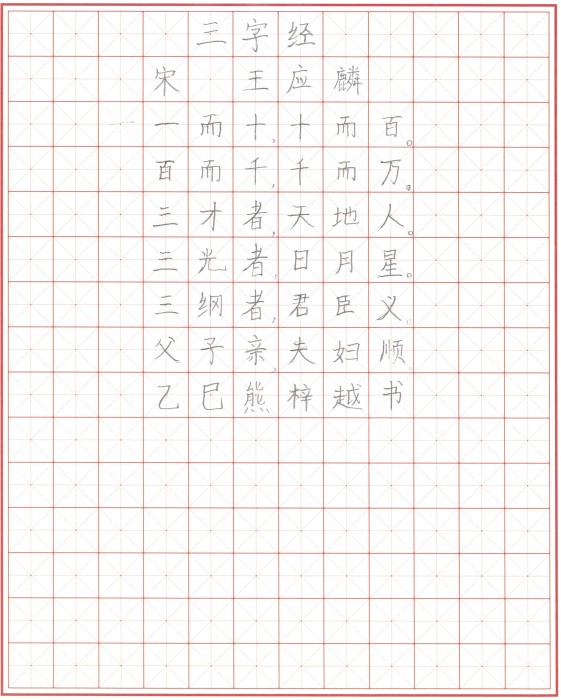 三字经
宋 王应麟
一而十,十而百。
百而千,千而万。
三才者,天地人。
三光者,日月星。
三纲者,君臣义。
父子亲,夫妇顺。
乙巳熊梓越书